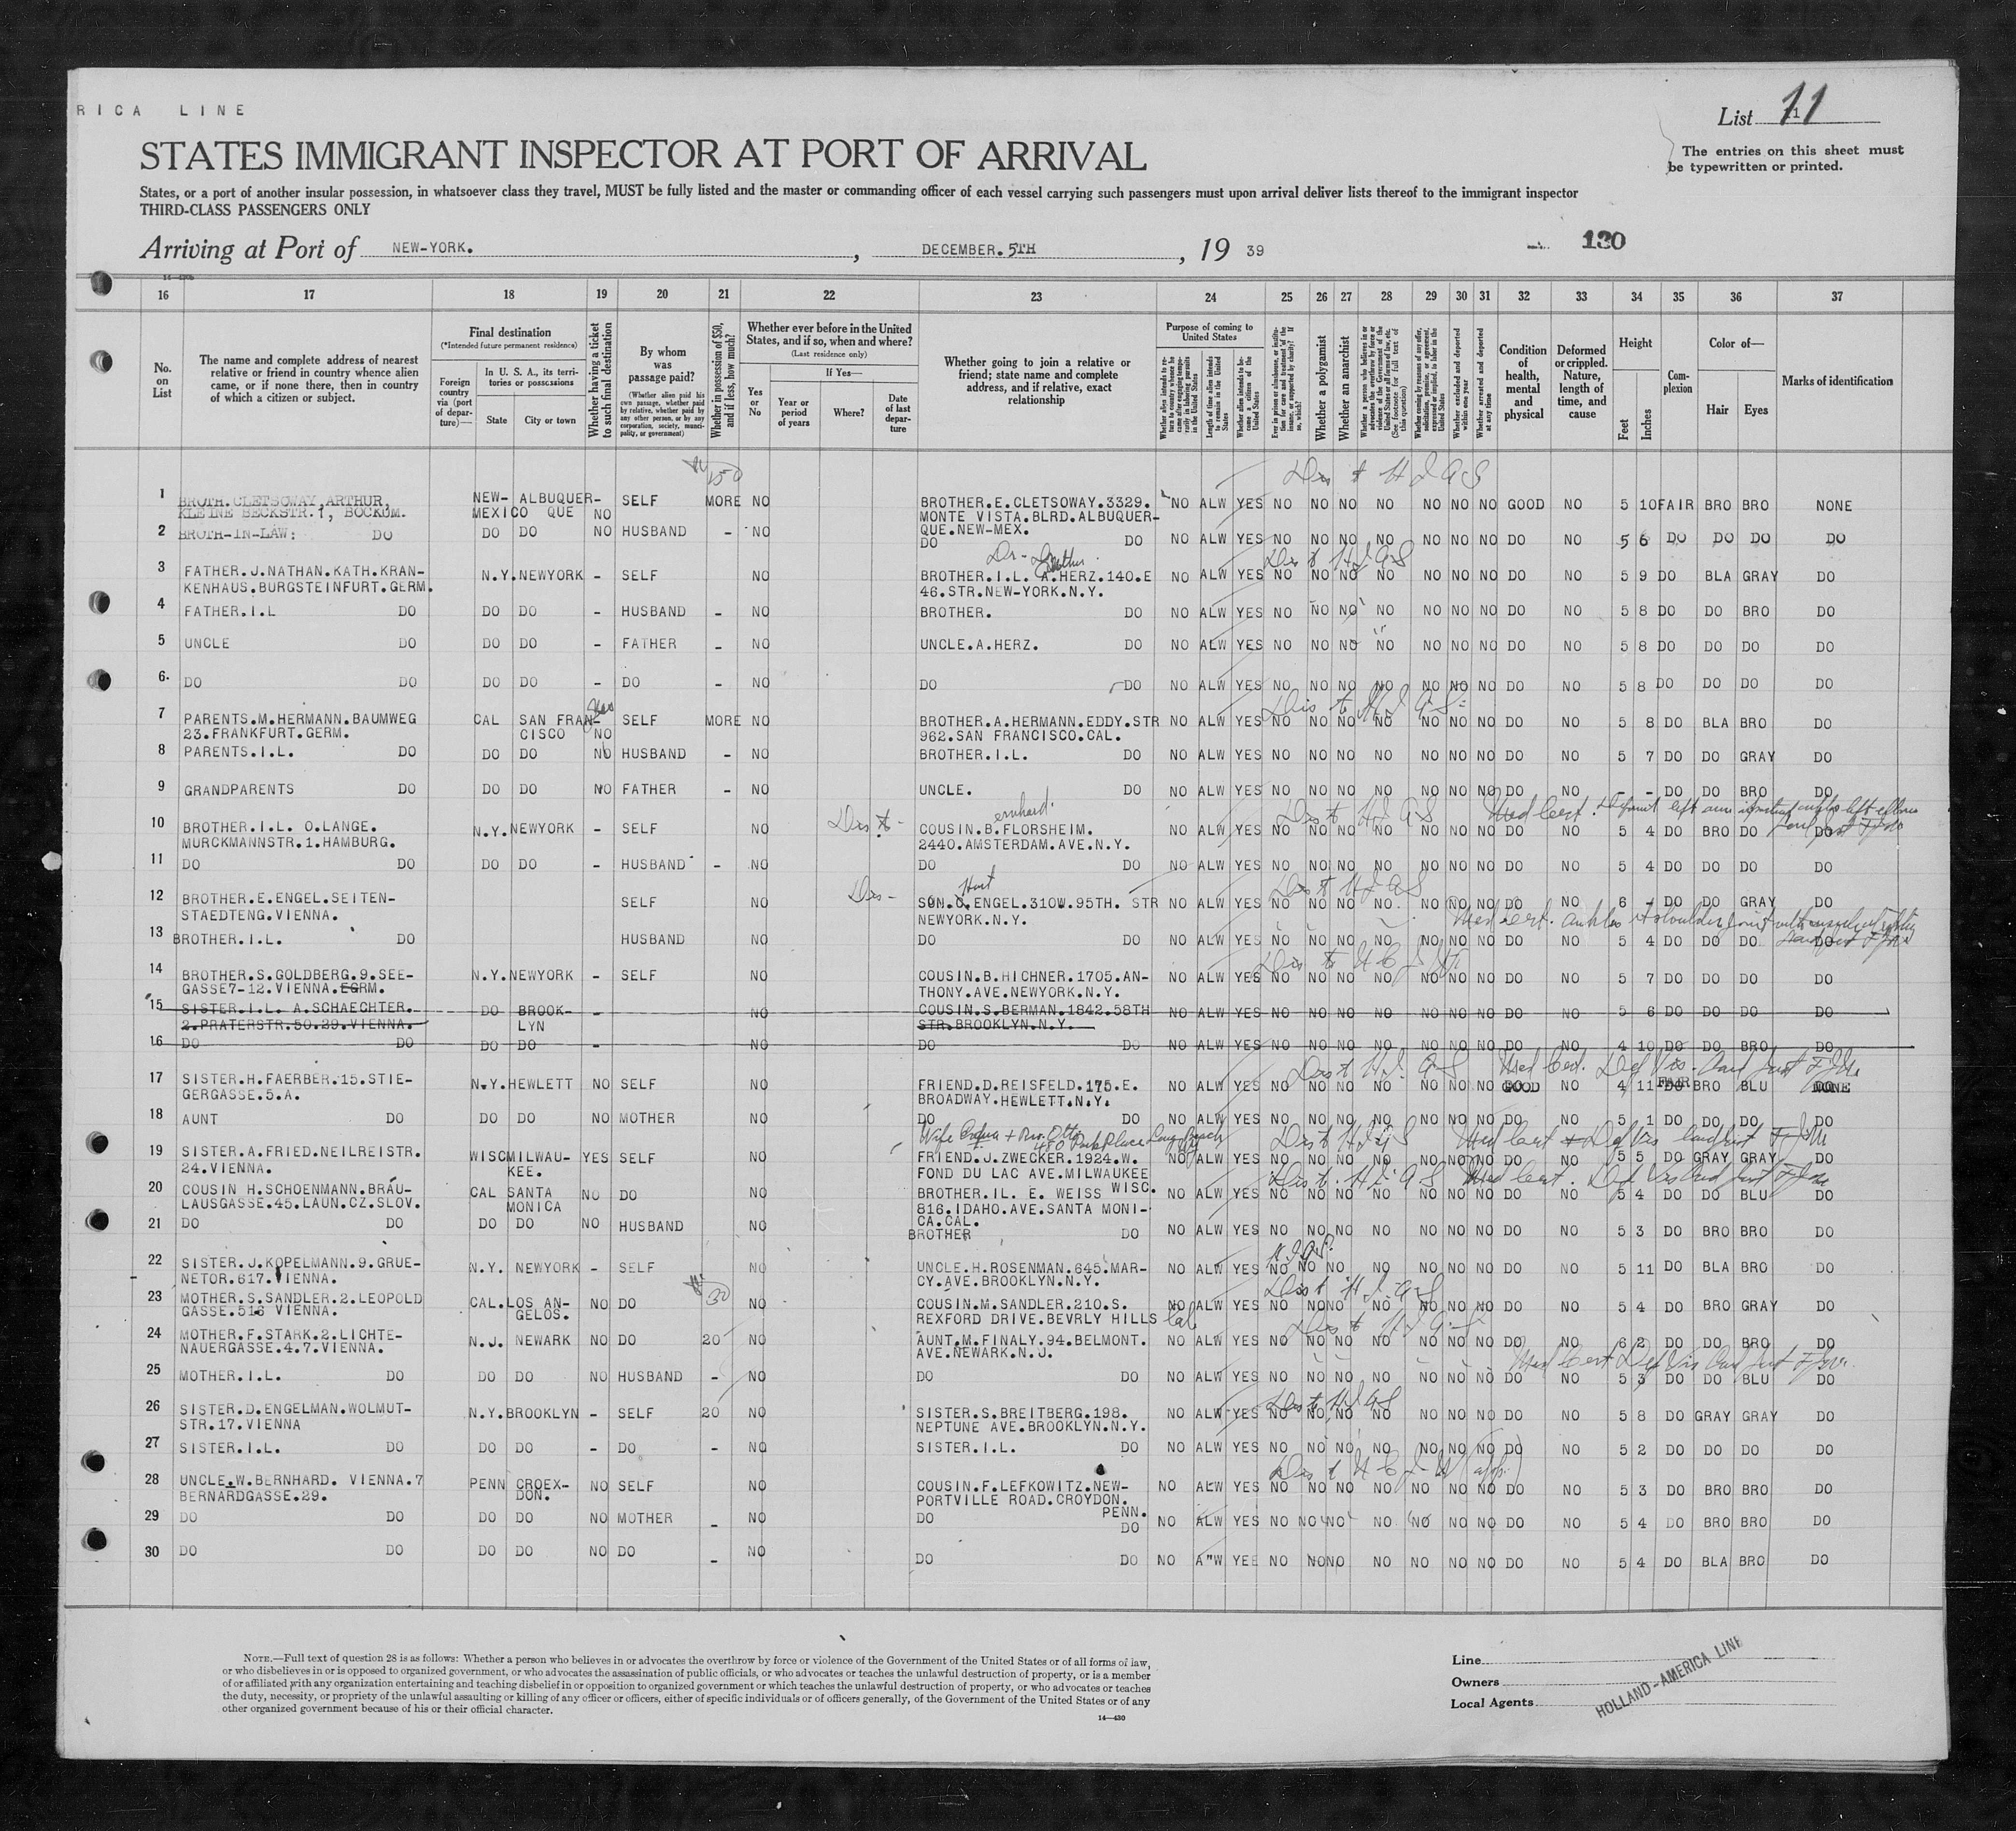 RICA LINE
List 11
STATES IMMIGRANT INSPECTOR AT PORT OF ARRIVAL
The entries on this sheet must
be typewritten or printed.
States, or a port of another insular possession, in whatsoever class they travel, MUST be fully listed and the master or commanding officer of each vessel carrying such passengers must upon arrival deliver lists thereof to the immigrant inspector
THIRD-CLASS PASSENGERS ONLY
Arriving at Port of NEW-YORK. , DECEMBER. 5TH , 19 39
130
16 17 18 19 20 21 22 23 24 25 26 27 28 29 30 31 32 33 34 35 36 37
No. on List
The name and complete address of nearest relative or friend in country whence alien came, or if none there, then in country of which a citizen or subject.
Final destination
(*Intended future permanent residence)
Foreign country via (port of departure)—
In U. S. A., its territories or possessions
State City or town
Whether having a ticket to such final destination
By whom was passage paid?
(Whether alien paid his own passage, whether paid by relative, whether paid by any other person, or by any corporation, society, municipality, or government)
Whether in possession of $50, and if less, how much?
Whether ever before in the United States, and if so, when and where?
(Last residence only)
Yes or No
If Yes—
Year or period of years Where? Date of last departure
Whether going to join a relative or friend; state name and complete address, and if relative, exact relationship
Purpose of coming to United States
Whether a polygamist
Whether an anarchist
Condition of health, mental and physical
Deformed or crippled. Nature, length of time, and cause
Height
Feet Inches
Complexion
Color of—
Hair Eyes
Marks of identification
150
Dis to H I A S
1 BROTH.CLETSOWAY,ARTHUR, NEW- ALBUQUER- SELF MORE NO BROTHER.E.CLETSOWAY.3329. NO ALW YES NO NO NO NO NO NO NO GOOD NO 5 10 FAIR BRO BRO NONE
KLEINE BECKSTR.1, BOCKUM. MEXICO QUE NO MONTE VISTA.BLRD.ALBUQUER-
QUE.NEW-MEX.
2 BROTH-IN-LAW: DO DO DO NO HUSBAND - NO DO DO NO ALW YES NO NO NO NO NO NO NO DO NO 5 6 DO DO DO DO
Dis to H I A S
3 FATHER.J.NATHAN.KATH.KRAN- N.Y. NEWYORK - SELF NO BROTHER.I.L. A.HERZ.140.E NO ALW YES NO NO NO NO NO NO NO DO NO 5 9 DO BLA GRAY DO
KENHAUS.BURGSTEINFURT.GERM. 46.STR.NEW-YORK.N.Y.
4 FATHER.I.L DO DO DO - HUSBAND - NO BROTHER. DO NO ALW YES NO NO NO NO NO NO NO DO NO 5 8 DO DO BRO DO
5 UNCLE DO DO DO - FATHER - NO UNCLE.A.HERZ. DO NO ALW YES NO NO NO NO NO NO NO DO NO 5 8 DO DO DO DO
6. DO DO DO DO - DO - NO DO DO NO ALW YES NO NO NO NO NO NO NO DO NO 5 8 DO DO DO DO
Dis to H I A S
7 PARENTS.M.HERMANN.BAUMWEG CAL SAN FRAN- SELF MORE NO BROTHER.A.HERMANN.EDDY.STR NO ALW YES NO NO NO NO NO NO NO DO NO 5 8 DO BLA BRO DO
23.FRANKFURT.GERM. CISCO NO 962.SAN FRANCISCO.CAL.
8 PARENTS.I.L. DO DO DO NO HUSBAND - NO BROTHER.I.L. DO NO ALW YES NO NO NO NO NO NO NO DO NO 5 7 DO DO GRAY DO
9 GRANDPARENTS DO DO DO NO FATHER - NO UNCLE. DO NO ALW YES NO NO NO NO NO NO NO DO NO - - DO DO BRO DO
ernhard. Dis to H I A S Med Cert.
10 BROTHER.I.L. O.LANGE. N.Y. NEWYORK - SELF NO COUSIN.B.FLORSHEIM. NO ALW YES NO NO NO NO NO NO NO DO NO 5 4 DO BRO DO DO
MURCKMANNSTR.1.HAMBURG. 2440.AMSTERDAM.AVE.N.Y.
11 DO DO DO DO - HUSBAND - NO DO DO NO ALW YES NO NO NO NO NO NO NO DO NO 5 4 DO DO DO DO
Dis to H I A S
12 BROTHER.E.ENGEL.SEITEN- SELF NO SON.O.ENGEL.310W.95TH. STR NO ALW YES NO NO NO NO NO NO NO DO NO 6 1 DO DO GRAY DO
STAEDTENG.VIENNA. NEWYORK.N.Y.
Med Cert.
13 BROTHER.I.L. DO HUSBAND NO DO DO NO ALW YES NO NO NO NO NO NO NO DO NO 5 4 DO DO DO DO
14 BROTHER.S.GOLDBERG.9.SEE- N.Y. NEWYORK - SELF NO COUSIN.B.HICHNER.1705.AN- NO ALW YES NO NO NO NO NO NO NO DO NO 5 7 DO DO DO DO
GASSE7-12.VIENNA.EGRM. THONY.AVE.NEWYORK.N.Y.
15 SISTER.I.L. A.SCHAECHTER. DO BROOK- - NO COUSIN.S.BERMAN.1842.58TH NO ALW YES NO NO NO NO NO NO NO DO NO 5 6 DO DO DO DO
2.PRATERSTR.50.29.VIENNA. LYN STR.BROOKLYN.N.Y.
16 DO DO DO DO - NO DO DO NO ALW YES NO NO NO NO NO NO NO DO NO 4 10 DO DO BRO DO
Dis to H I A S Med Cert. Def Vis.
17 SISTER.H.FAERBER.15.STIE- N.Y. HEWLETT NO SELF NO FRIEND.D.REISFELD.175.E. NO ALW YES NO NO NO NO NO NO NO GOOD NO 4 11 FAIR BRO BLU NONE
GERGASSE.5.A. BROADWAY.HEWLETT.N.Y.
18 AUNT DO DO DO NO MOTHER NO DO DO NO ALW YES NO NO NO NO NO NO NO DO NO 5 1 DO DO DO DO
Dis to H I A S Med Cert Def Vis
19 SISTER.A.FRIED.NEILREISTR. WISC MILWAU- YES SELF NO FRIEND.J.ZWECKER.1924.W. NO ALW YES NO NO NO NO NO NO NO DO NO 5 5 DO GRAY GRAY DO
24.VIENNA. KEE. FOND DU LAC AVE.MILWAUKEE
WISC.
Dis to H I A S Med Cert. Def Vis
20 COUSIN H.SCHOENMANN.BRAU- CAL SANTA NO DO NO BROTHER.IL. E. WEISS NO ALW YES NO NO NO NO NO NO NO DO NO 5 4 DO DO BLU DO
LAUSGASSE.45.LAUN.CZ.SLOV. MONICA 816.IDAHO.AVE.SANTA MONI-
CA.CAL.
21 DO DO DO DO NO HUSBAND NO BROTHER DO NO ALW YES NO NO NO NO NO NO NO DO NO 5 3 DO BRO BRO DO
H I A S
22 SISTER.J.KOPELMANN.9.GRUE- N.Y. NEWYORK - SELF NO UNCLE.H.ROSENMAN.645.MAR- NO ALW YES NO NO NO NO NO NO NO DO NO 5 11 DO BLA BRO DO
NETOR.617.VIENNA. CY.AVE.BROOKLYN.N.Y.
Dis to H I A S
23 MOTHER.S.SANDLER.2.LEOPOLD CAL. LOS AN- NO DO 30 NO COUSIN.M.SANDLER.210.S. NO ALW YES NO NO NO NO NO NO NO DO NO 5 4 DO BRO GRAY DO
GASSE.516 VIENNA. GELOS. REXFORD DRIVE.BEVRLY HILLS Cal
Dis to H I A S
24 MOTHER.F.STARK.2.LICHTE- N.J. NEWARK NO DO 20 NO AUNT.M.FINALY.94.BELMONT. NO ALW YES NO NO NO NO NO NO NO DO NO 6 2 DO DO BRO DO
NAUERGASSE.4.7.VIENNA. AVE.NEWARK.N.J.
Med Cert Def Vis
25 MOTHER.I.L. DO DO DO NO HUSBAND - NO DO DO NO ALW YES NO NO NO NO NO NO NO DO NO 5 3 DO DO BLU DO
Dis to H I A S
26 SISTER.D.ENGELMAN.WOLMUT- N.Y. BROOKLYN - SELF 20 NO SISTER.S.BREITBERG.198. NO ALW YES NO NO NO NO NO NO NO DO NO 5 8 DO GRAY GRAY DO
STR.17.VIENNA NEPTUNE AVE.BROOKLYN.N.Y.
27 SISTER.I.L. DO DO DO - DO - NO SISTER.I.L. DO NO ALW YES NO NO NO NO NO NO NO DO NO 5 2 DO DO DO DO
28 UNCLE.W.BERNHARD. VIENNA.7 PENN CROEX- NO SELF NO COUSIN.F.LEFKOWITZ.NEW- NO ALW YES NO NO NO NO NO NO NO DO NO 5 3 DO BRO BRO DO
BERNARDGASSE.29. DON. PORTVILLE ROAD.CROYDON.
PENN.
29 DO DO DO DO NO MOTHER - NO DO DO NO ALW YES NO NO NO NO NO NO NO DO NO 5 4 DO BRO BRO DO
30 DO DO DO DO NO DO - NO DO DO NO A"W YEE NO NO NO NO NO NO NO DO NO 5 4 DO BLA BRO DO
NOTE.—Full text of question 28 is as follows: Whether a person who believes in or advocates the overthrow by force or violence of the Government of the United States or of all forms of law,
or who disbelieves in or is opposed to organized government, or who advocates the assassination of public officials, or who advocates or teaches the unlawful destruction of property, or is a member
of or affiliated with any organization entertaining and teaching disbelief in or opposition to organized government or which teaches the unlawful destruction of property, or who advocates or teaches
the duty, necessity, or propriety of the unlawful assaulting or killing of any officer or officers, either of specific individuals or of officers generally, of the Government of the United States or of any
other organized government because of his or their official character.
14—430
Line
Owners
Local Agents
HOLLAND-AMERICA LINE